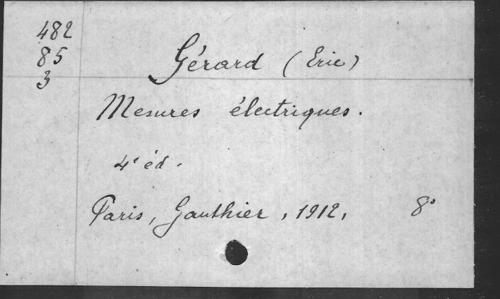 482
85
3
Gérard (Eric)
Mesures électriques.
4e éd.
Paris, Gauthier, 1912, 8°